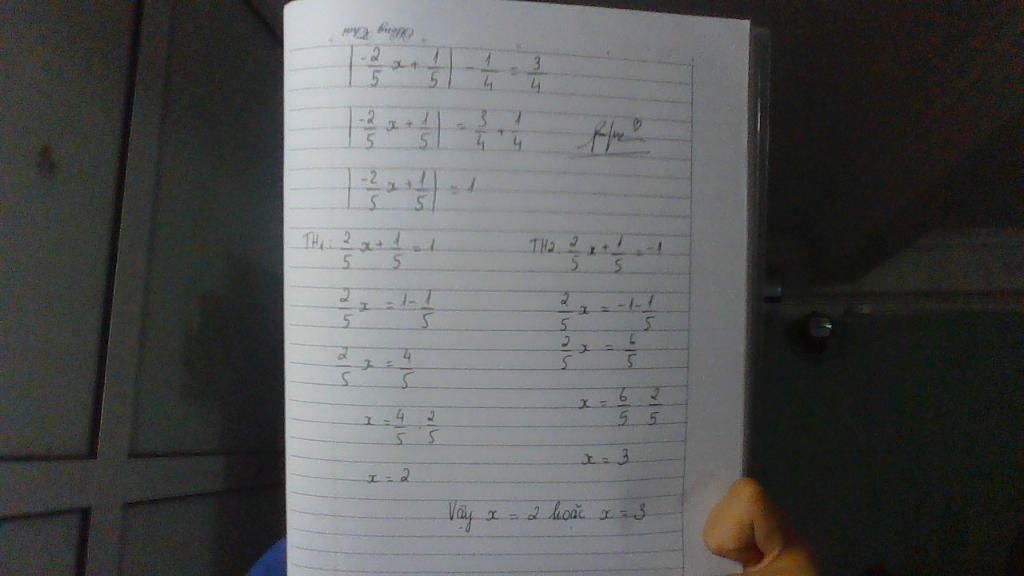 |-2/5 x + 1/5| - 1/4 = 3/4
|-2/5 x + 1/5| = 3/4 + 1/4
|-2/5 x + 1/5| = 1
TH1: 2/5 x + 1/5 = 1
2/5 x = 1 - 1/5
2/5 x = 4/5
x = 4/5 : 2/5
x = 2
TH2: 2/5 x + 1/5 = -1
2/5 x = -1 - 1/5
2/5 x = 6/5
x = 6/5 : 2/5
x = 3
Vậy x = 2 hoặc x = 3